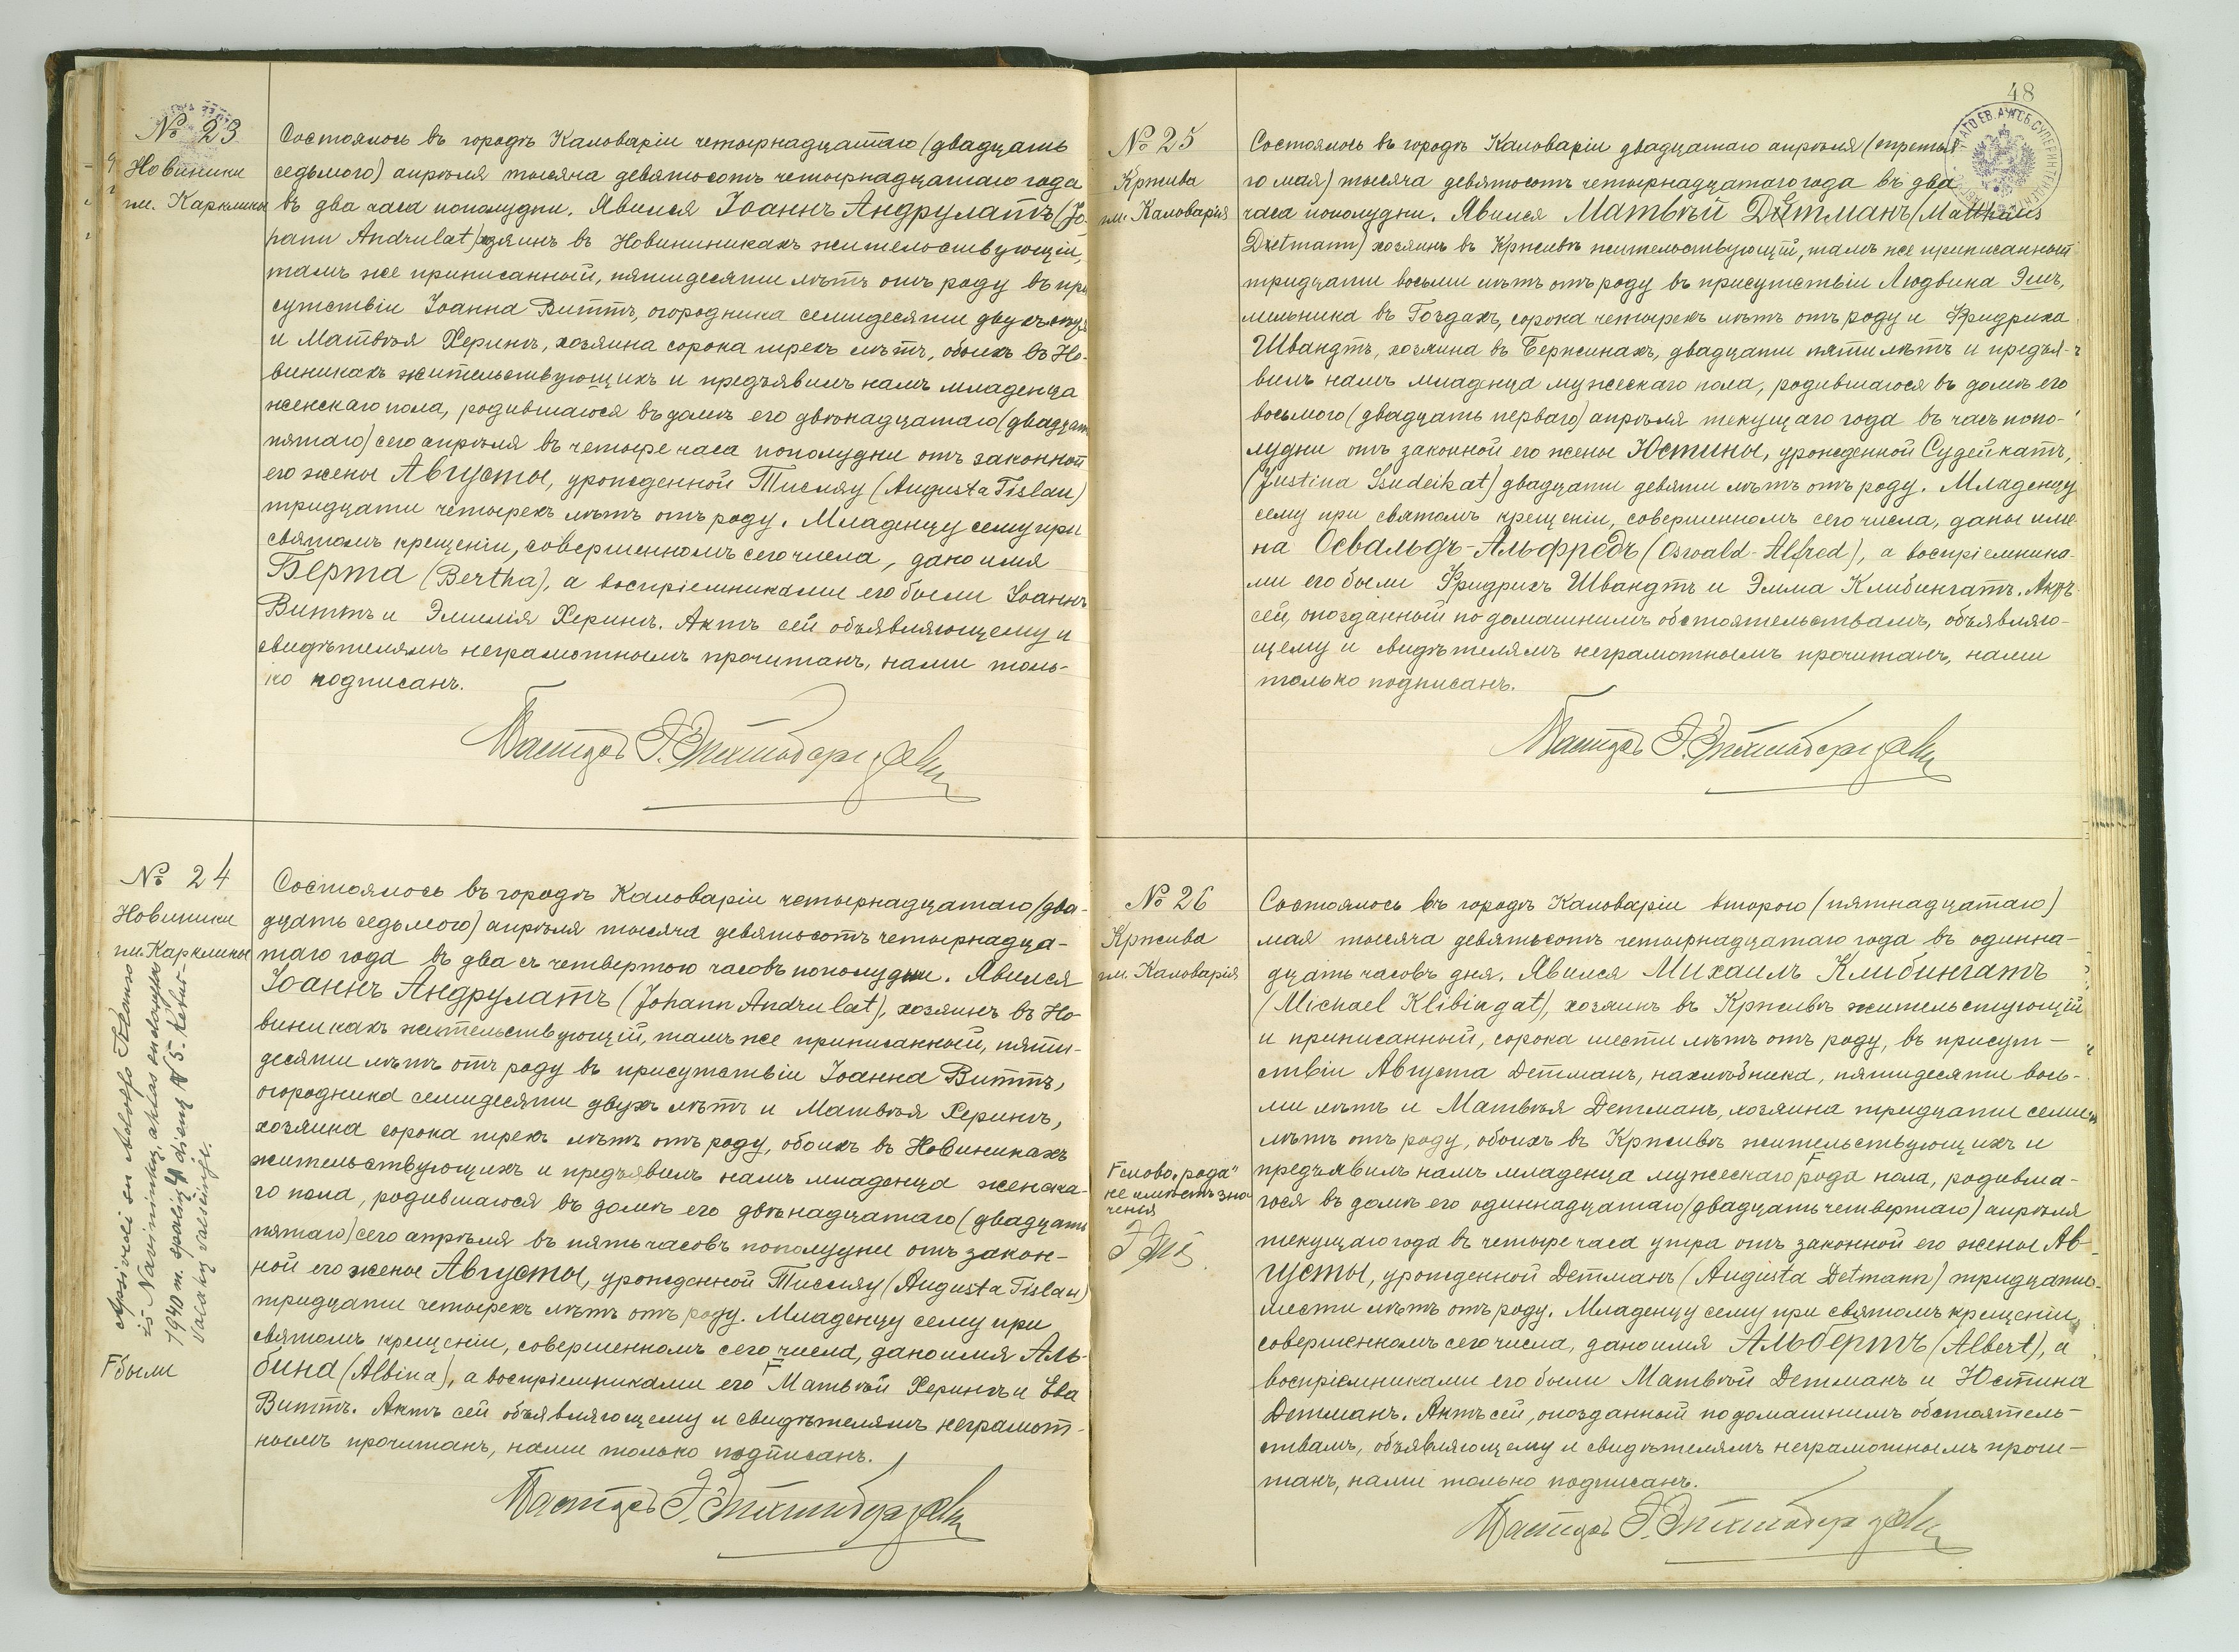 № 23
Новиники
гм. Карклины
Состоялось въ городѣ Кальваріи четырнадцатаго (двадцать
седьмого) апрѣля тысяча девятьсотъ четырнадцатаго года
въ два часа пополудни. Явился Іоаннъ Андрулатъ (Jo-
hann Andrulat) хозяинъ въ Новининикахъ жительствующій,
тамъ же приписанный, пятидесяти лѣтъ отъ роду въ при
сутствіи Іоанна Виттъ, огородника семидесяти двухъ
и Матвѣя Херингъ, хозяина сорока трехъ лѣтъ, обоихъ въ Но-
виникахъ жительствующихъ и предъявилъ намъ младенца
женскаго пола, родившагося въ домѣ его двѣнадцатаго (двадцать
пятаго) сего апрѣля въ четыре часа пополудни отъ законной
его жены Августы, урожденной Тислау (Augusta Tislau)
тридцати четырехъ лѣтъ отъ роду. Младенцу сему при
святомъ крещеніи, совершенномъ сего числа, дано имя
Берта (Bertha), а воспріемниками его были Іоаннъ
Виттъ и Эмилія Херингъ. Актъ сей объявляющему и
свидѣтелямъ неграмотнымъ прочитанъ, нами толь-
ко подписанъ.
Пасторъ
№ 24
Новиники
гм. Карклины
Состоялось въ городѣ Кальваріи четырнадцатаго (два-
дцать седьмого) апрѣля тысяча девятьсотъ четырнадца-
таго года въ два съ четвертью часовъ пополудни. Явился
Іоаннъ Андрулатъ (Johann Andrulat), хозяинъ въ Но
виникахъ жительствующій, тамъ же приписанный, пяти-
десяти лѣтъ отъ роду въ присутствіи Іоанна Виттъ,
огородника семидесяти двухъ лѣтъ и Матвѣя Херингъ,
хозяина сорока трехъ лѣтъ отъ роду, обоихъ въ Новиникахъ
жительствующихъ и предъявилъ намъ младенца женска-
го пола, родившагося въ домѣ его двѣнадцатаго (двадцать
пятаго) сего апрѣля въ пять часовъ пополудни отъ закон-
ной его жены Августы, урожденной Тислау (Augusta Tislau)
тридцати четырехъ лѣтъ отъ роду. Младенцу сему при
святомъ крещеніи, совершенномъ сего числа, дано имя Аль-
бина (Albina), а воспріемниками его Г Матвѣй Херингъ и Ева
Виттъ. Актъ сей объявляющему и свидѣтелямъ неграмот-
нымъ прочитанъ, нами только подписанъ.
Г были
Пасторъ
Apsivedi su Adolfo
iš Navininkų, aktas
1940 m. spalių 4 dieną № 5. Kebur-
Valakų valsčiuje.
48
№ 25
Кржива
гм. Кальварія
Состоялось въ городѣ Кальваріи двадцатаго апрѣля (третья
го мая) тысяча девятьсотъ четырнадцатаго года въ два
часа пополудни. Явился Матвѣй Детманъ (Matthäus
Detmann) хозяинъ въ Крживѣ жительствующій, тамъ же приписанный
тридцати восьми лѣтъ отъ роду въ присутствіи Людвика Эльъ,
мельника въ Гоздахъ, сорока четырехъ лѣтъ отъ роду и Фридриха
Швандтъ, хозяина въ Бержинахъ, двадцати пяти лѣтъ и предъя-
вилъ намъ младенца мужескаго пола, родившагося въ домѣ его
восьмого (двадцать перваго) апрѣля текущаго года въ часъ попо-
лудни отъ законной его жены Юстины, урожденной Судейкатъ,
(Justina Ssudeikat) двадцати девяти лѣтъ отъ роду. Младенцу
сему при святомъ крещеніи, совершенномъ сего числа, даны име
на Освальдъ-Альфредъ (Oswald-Alfred), а воспріемника-
ми его были Фридрихъ Швандтъ и Эмма Клибингатъ. Актъ
сей, опозданный по домашнимъ обстоятельствамъ, объявляю-
щему и свидѣтелямъ неграмотнымъ прочитанъ, нами
только подписанъ.
Пасторъ
№ 26
Кржива
гм. Кальварія
Состоялось въ городѣ Кальваріи второго (пятнадцатаго)
мая тысяча девятьсотъ четырнадцатаго года въ одинна-
дцать часовъ дня. Явился Михаилъ Клибингатъ
(Michael Klibingat), хозяинъ въ Крживѣ жительстующій
и приписанный, сорока шести лѣтъ отъ роду, въ присут-
ствіи Августа Детманъ, нахлѣбника, пятидесяти вось-
ми лѣтъ и Матвѣя Детманъ, хозяина тридцати семи
лѣтъ отъ роду, обоихъ въ Крживѣ жительствующихъ и
предъявилъ намъ младенца мужескаго Г рода пола, родивша-
гося въ домѣ его одиннадцатаго (двадцать четвертаго) апрѣля
текущаго года въ четыре часа утра отъ законной его жены Ав-
густы, урожденной Детманъ (Augusta Detmann) тридцати-
шести лѣтъ отъ роду. Младенцу сему при святомъ крещеніи,
совершенномъ сего числа, дано имя Альбертъ (Albert), а
воспріемниками его были Матвѣй Детманъ и Юстина
Детманъ. Актъ сей, опозданный по домашнимъ обстоятель-
ствамъ, объявляющему и свидѣтелямъ неграмотнымъ прочи-
танъ, нами только подписанъ.
Г слово „рода"
не имѣетъ зна
ченія
Пасторъ